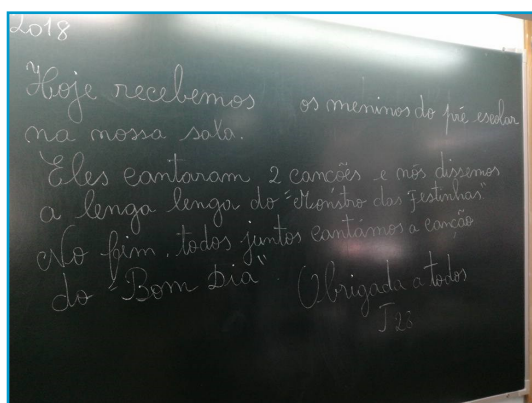 2018
Hoje recebemos os meninos do pré escolar
na nossa sala.
Eles cantaram 2 canções e nós dissemos
a lenga lenga do "Monstro das Festinhas"
No fim, todos juntos cantámos a canção
do "Bom Dia". Obrigada a todos
T23